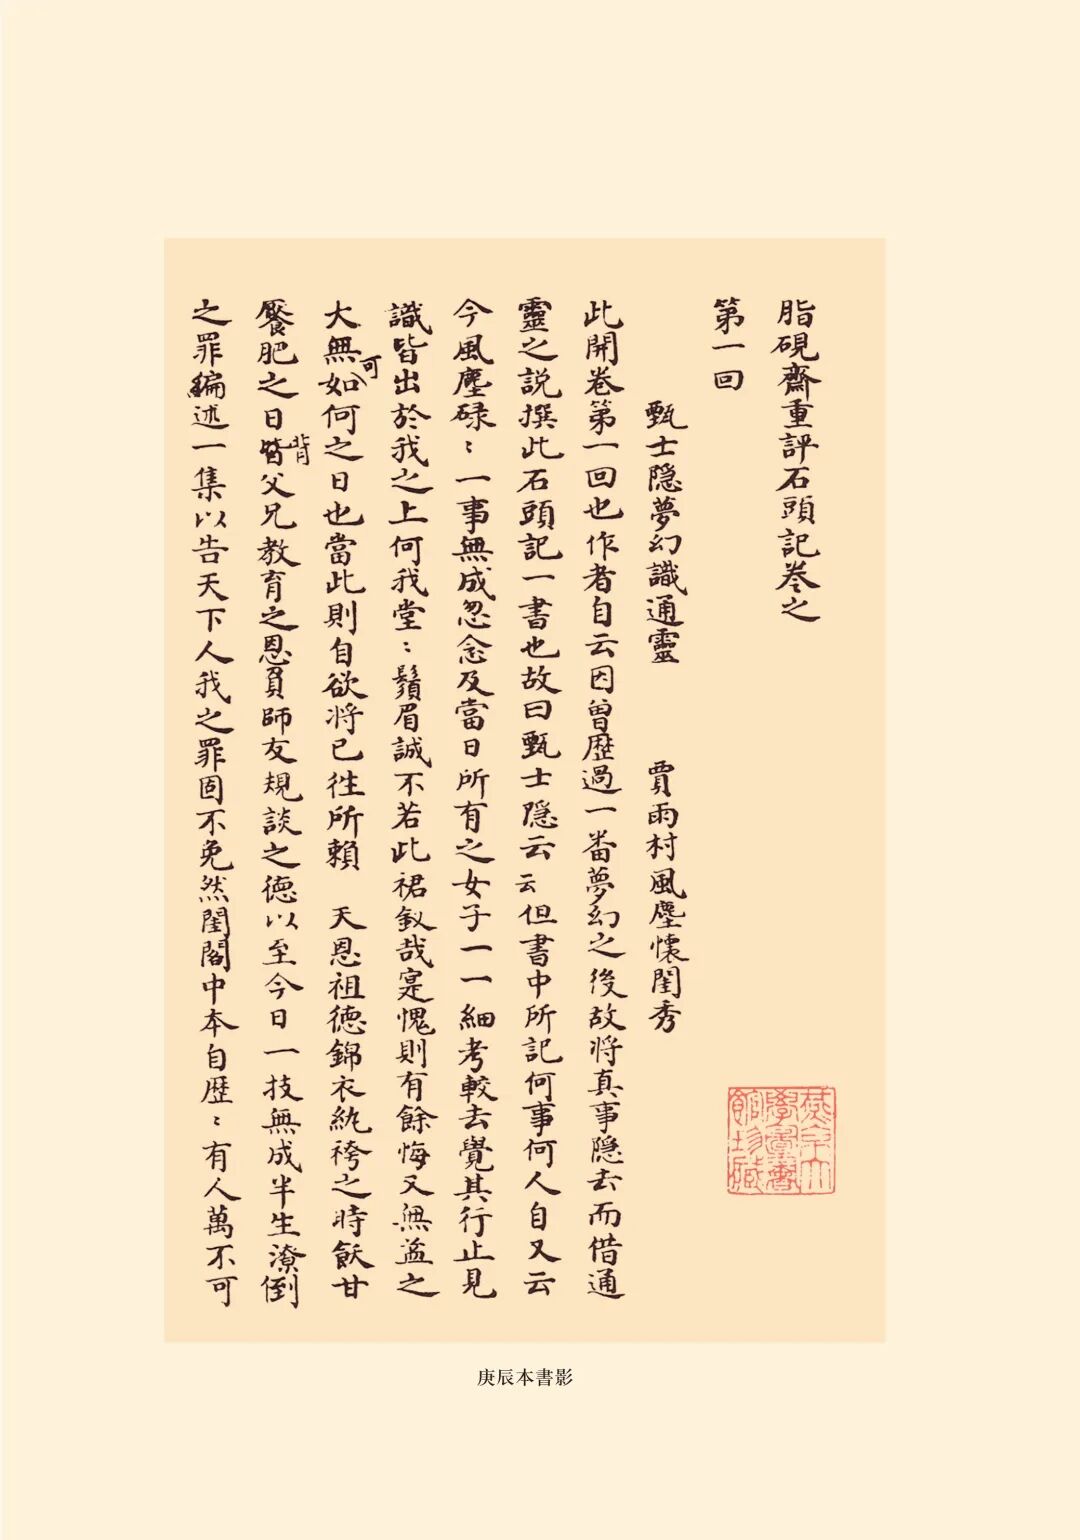 脂硯齋重評石頭記卷之
第一回
甄士隐夢幻識通靈　賈雨村風塵懷閨秀
此開卷第一回也作者自云因曾歷過一番夢幻之後故将真事隐去而借通
靈之説撰此石頭記一書也故曰甄士隐云云但書中所記何事何人自又云
今風塵碌：一事無成忽念及當日所有之女子一一細考較去覺其行止見
識皆出於我之上何我堂：鬚眉誠不若此裙釵哉寔愧則有餘悔又無益之
大無可如何之日也當此則自欲将已徃所賴　天恩祖德錦衣紈袴之時飫甘
饜肥之日背父兄教育之恩負師友規談之德以至今日一技無成半生潦倒
之罪編述一集以告天下人我之罪固不免然閨閣中本自歷：有人萬不可
燕京大學圖書館珍藏
庚辰本書影